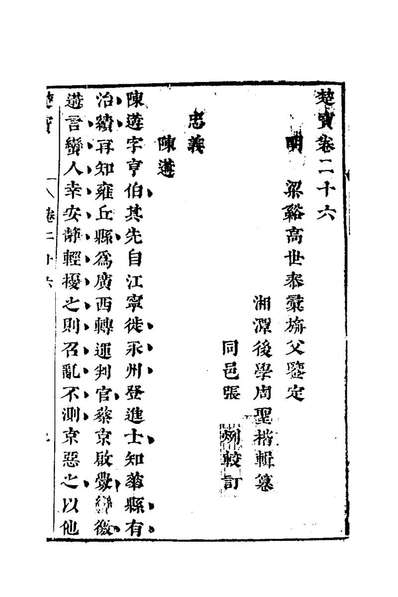 楚寶卷二十六
明 梁谿高世泰彙旃父鑒定
湘潭後學周聖楷輯纂
同邑張 較訂
忠義
陳遘
陳遘字亨伯其先自江寧徙永州登進士知莘縣有
治績再知雍丘縣爲廣西轉運判官蔡京啟釁徽
遘言蠻人幸安靜輕擾之則召亂不測京惡之以他
楚寶 卷二十六